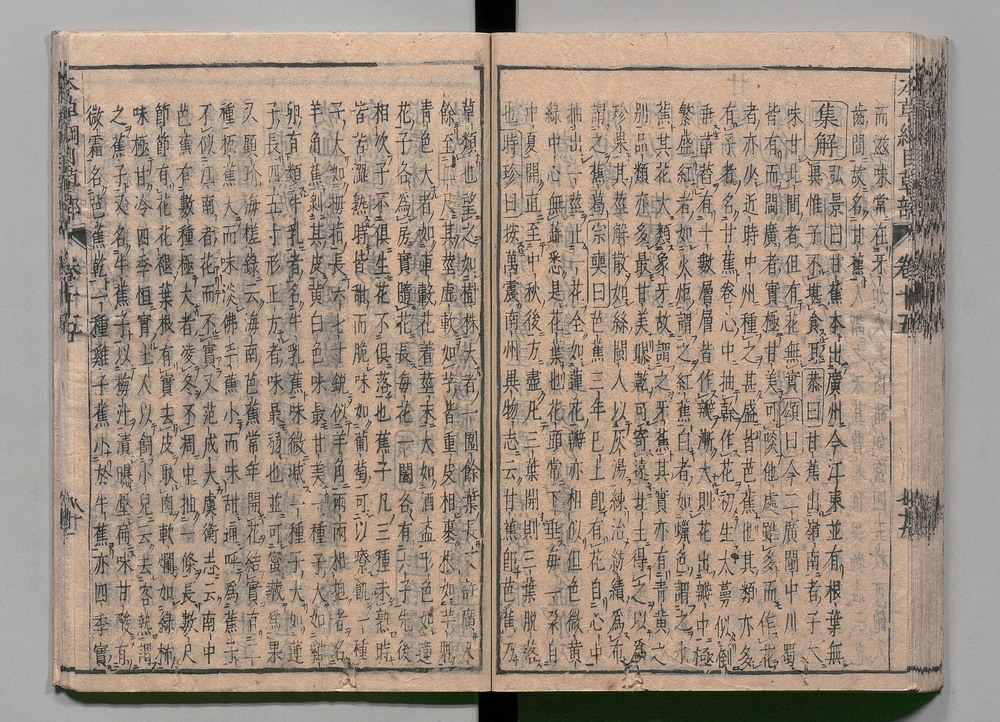 而滋味常在牙
齒間故名甘蕉
集解弘景曰甘蕉本出廣州今江東並有根葉無
異惟子不堪食耳恭曰甘蕉出嶺南者子大
味甘北間者但有花無實頌曰今二廣閩中川蜀
皆有而閩廣者實極甘美可啖他處雖多而作花
者亦少近時中州種之甚盛皆芭蕉也其類亦多
有子者名甘蕉卷心中抽幹作花初生大萼似倒
垂菡萏有十數層層皆作瓣漸大則花出瓣中極
繁盛紅者如火炬謂之紅蕉白者如蠟色謂之水
蕉其花大類象牙故謂之牙蕉其實亦有青黃之
別品類亦多最甘美曝乾可寄遠北土得之以爲
珍果其莖解散如絲閩人以灰湯練治紡績爲布
謂之蕉葛宗奭曰芭蕉三年已上即有花自心中
抽出一莖止一花全如蓮花瓣亦相似但色微黃
綠中心無蕊悉是花葉也花頭常下垂每一朵自
中夏開直至中秋後方盡凡三葉開則三葉脫落
也時珍曰按萬震南州異物志云甘蕉即芭蕉乃
草類也望之如樹株大者一圍餘葉長丈許廣尺
餘至二尺其莖虛軟如芋皆重皮相裹根如芋魁
青色大者如車轂花着莖末大如酒盃形色如蓮
花子各為房實隨花長每花一闔各有六子先後
相次子不俱生花不俱落也蕉子凡三種未熟時
皆苦澀熟時皆甜而脆味如葡萄可以療飢一種
子大如拇指長六七寸銳似羊角兩兩相抱者名
羊角蕉剝其皮黃白色味最甘美一種子大如雞
卵有類牛乳者名牛乳蕉味微減一種子大如蓮
子長四五寸形正方者味最弱也並可蜜藏爲果
又顧玠海槎錄云海南芭蕉常年開花結實有二
種板蕉大而味淡佛手蕉小而味甜通呼爲蕉子
不似江南者花而不實又范成大虞衡志云南中
芭蕉有數種極大者凌冬不凋中抽一條長數尺
節節有花花褪葉根有實去皮取肉軟爛如綠柿
味極甘冷四季恒實土人以飼小兒云去客熱謂
之蕉子又名牛蕉子以梅汁漬曝壓扁味甘酸有
微霜名芭蕉乾一種雞子蕉小於牛蕉亦四季實